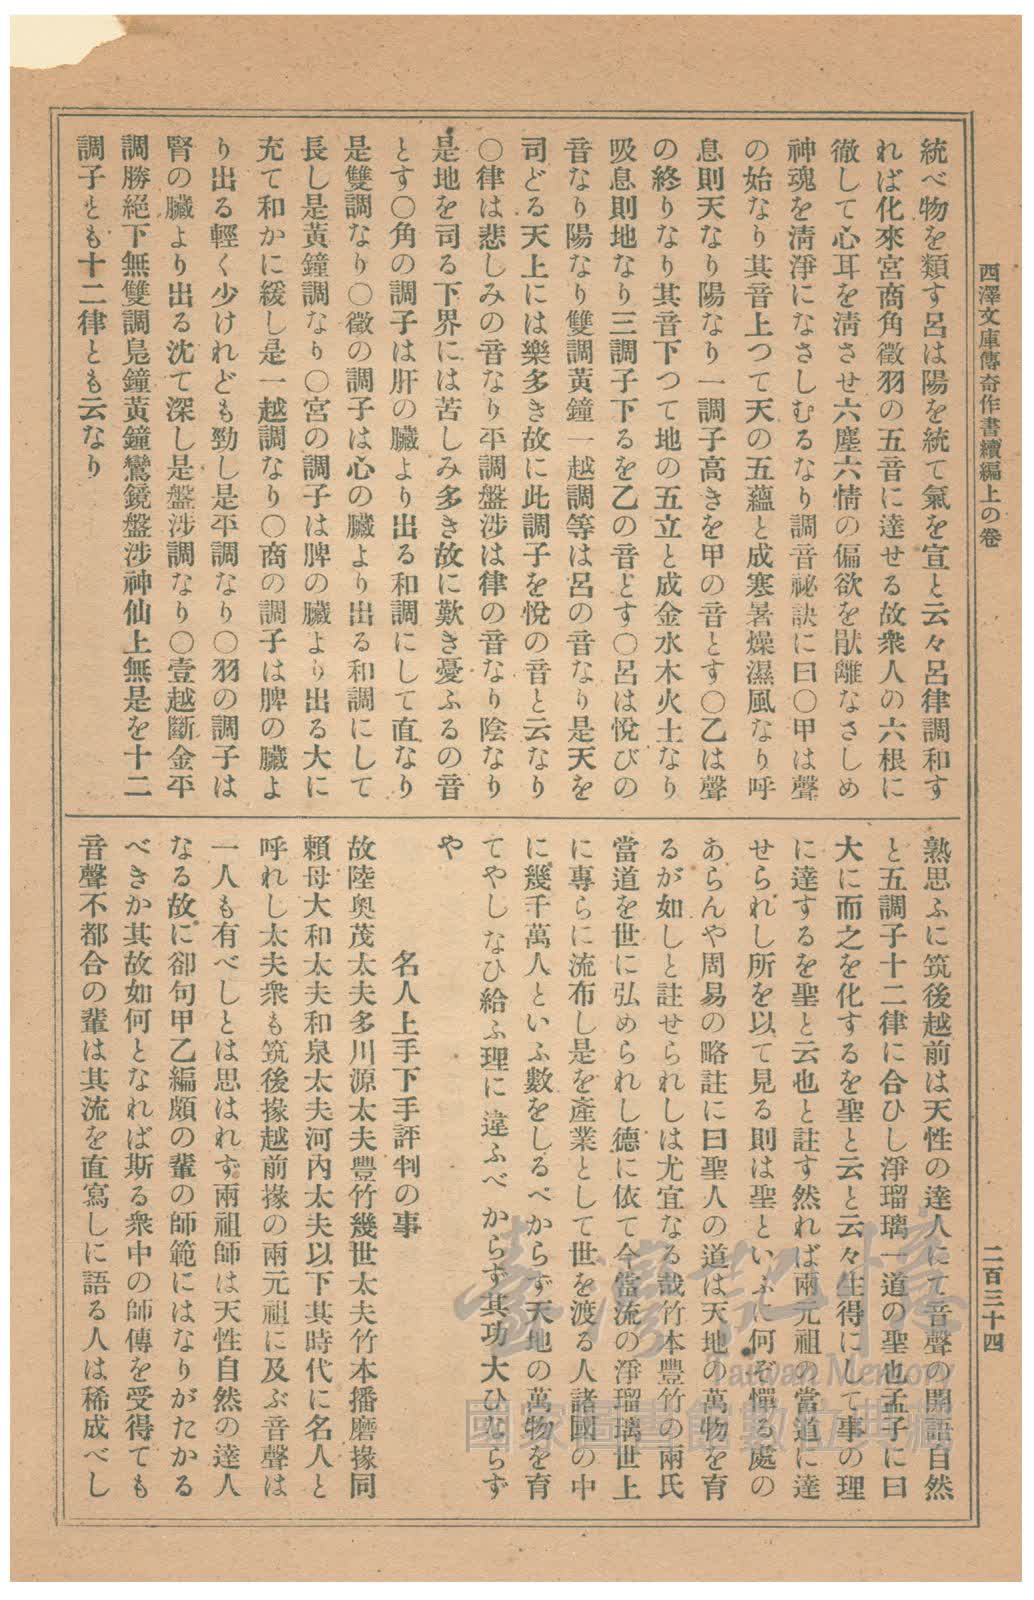 西澤文庫傳奇作書續編上の卷
二百三十四
統べ物を類す呂は陽を統て氣を宣と云々呂律調和す
れば化來宮商角徵羽の五音に達せる故衆人の六根に
徹して心耳を淸させ六塵六情の偏欲を猒離なさしめ
神魂を淸淨になさしむるなり調音祕訣に曰〇甲は聲
の始なり其音上つて天の五蘊と成寒暑燥濕風なり呼
息則天なり陽なり一調子高きを甲の音とす〇乙は聲
の終りなり其音下つて地の五立と成金水木火土なり
吸息則地なり三調子下るを乙の音とす〇呂は悅びの
音なり陽なり雙調黃鐘一越調等は呂の音なり是天を
司どる天上には樂多き故に此調子を悅の音と云なり
〇律は悲しみの音なり平調盤涉は律の音なり陰なり
是地を司る下界には苦しみ多き故に歎き憂ふるの音
とす〇角の調子は肝の臟より出る和調にして直なり
是雙調なり〇徵の調子は心の臟より出る和調にして
長し是黃鐘調なり〇宮の調子は脾の臟より出る大に
充て和かに緩し是一越調なり〇商の調子は脾の臟よ
り出る輕く少けれども勁し是平調なり〇羽の調子は
腎の臟より出る沈て深し是盤涉調なり〇壹越斷金平
調勝絕下無雙調鳧鐘黃鐘鸞鏡盤涉神仙上無是を十二
調子とも十二律とも云なり
熟思ふに筑後越前は天性の達人にて音聲の開語自然
と五調子十二律に合ひし淨瑠璃一道の聖也孟子に曰
大に而之を化するを聖と云と云々生得にして事の理
に達するを聖と云也と註す然れば兩元祖の當道に達
せられし所を以て見る則は聖といふに何ぞ憚る處の
あらんや周易の略註に曰聖人の道は天地の萬物を育
るが如しと註せられしは尤宜なる哉竹本豐竹の兩氏
當道を世に弘められし德に依て今當流の淨瑠璃世上
に專らに流布し是を產業として世を渡る人諸國の中
に幾千萬人といふ數をしるべからず天地の萬物を育
てやしなひ給ふ理に違ふべからず其功大ひならず
や
名人上手下手評判の事
故陸奧茂太夫多川源太夫豐竹幾世太夫竹本播磨掾同
賴母大和太夫和泉太夫河內太夫以下其時代に名人と
呼れし太夫衆も筑後掾越前掾の兩元祖に及ぶ音聲は
一人も有べしとは思はれず兩祖師は天性自然の達人
なる故に卻句甲乙編頗の輩の師範にはなりがたかる
べきか其故如何となれば斯る衆中の師傳を受得ても
音聲不都合の輩は其流を直寫しに語る人は稀成べし
臺灣記憶
Taiwan Memory
國家圖書館數位典藏